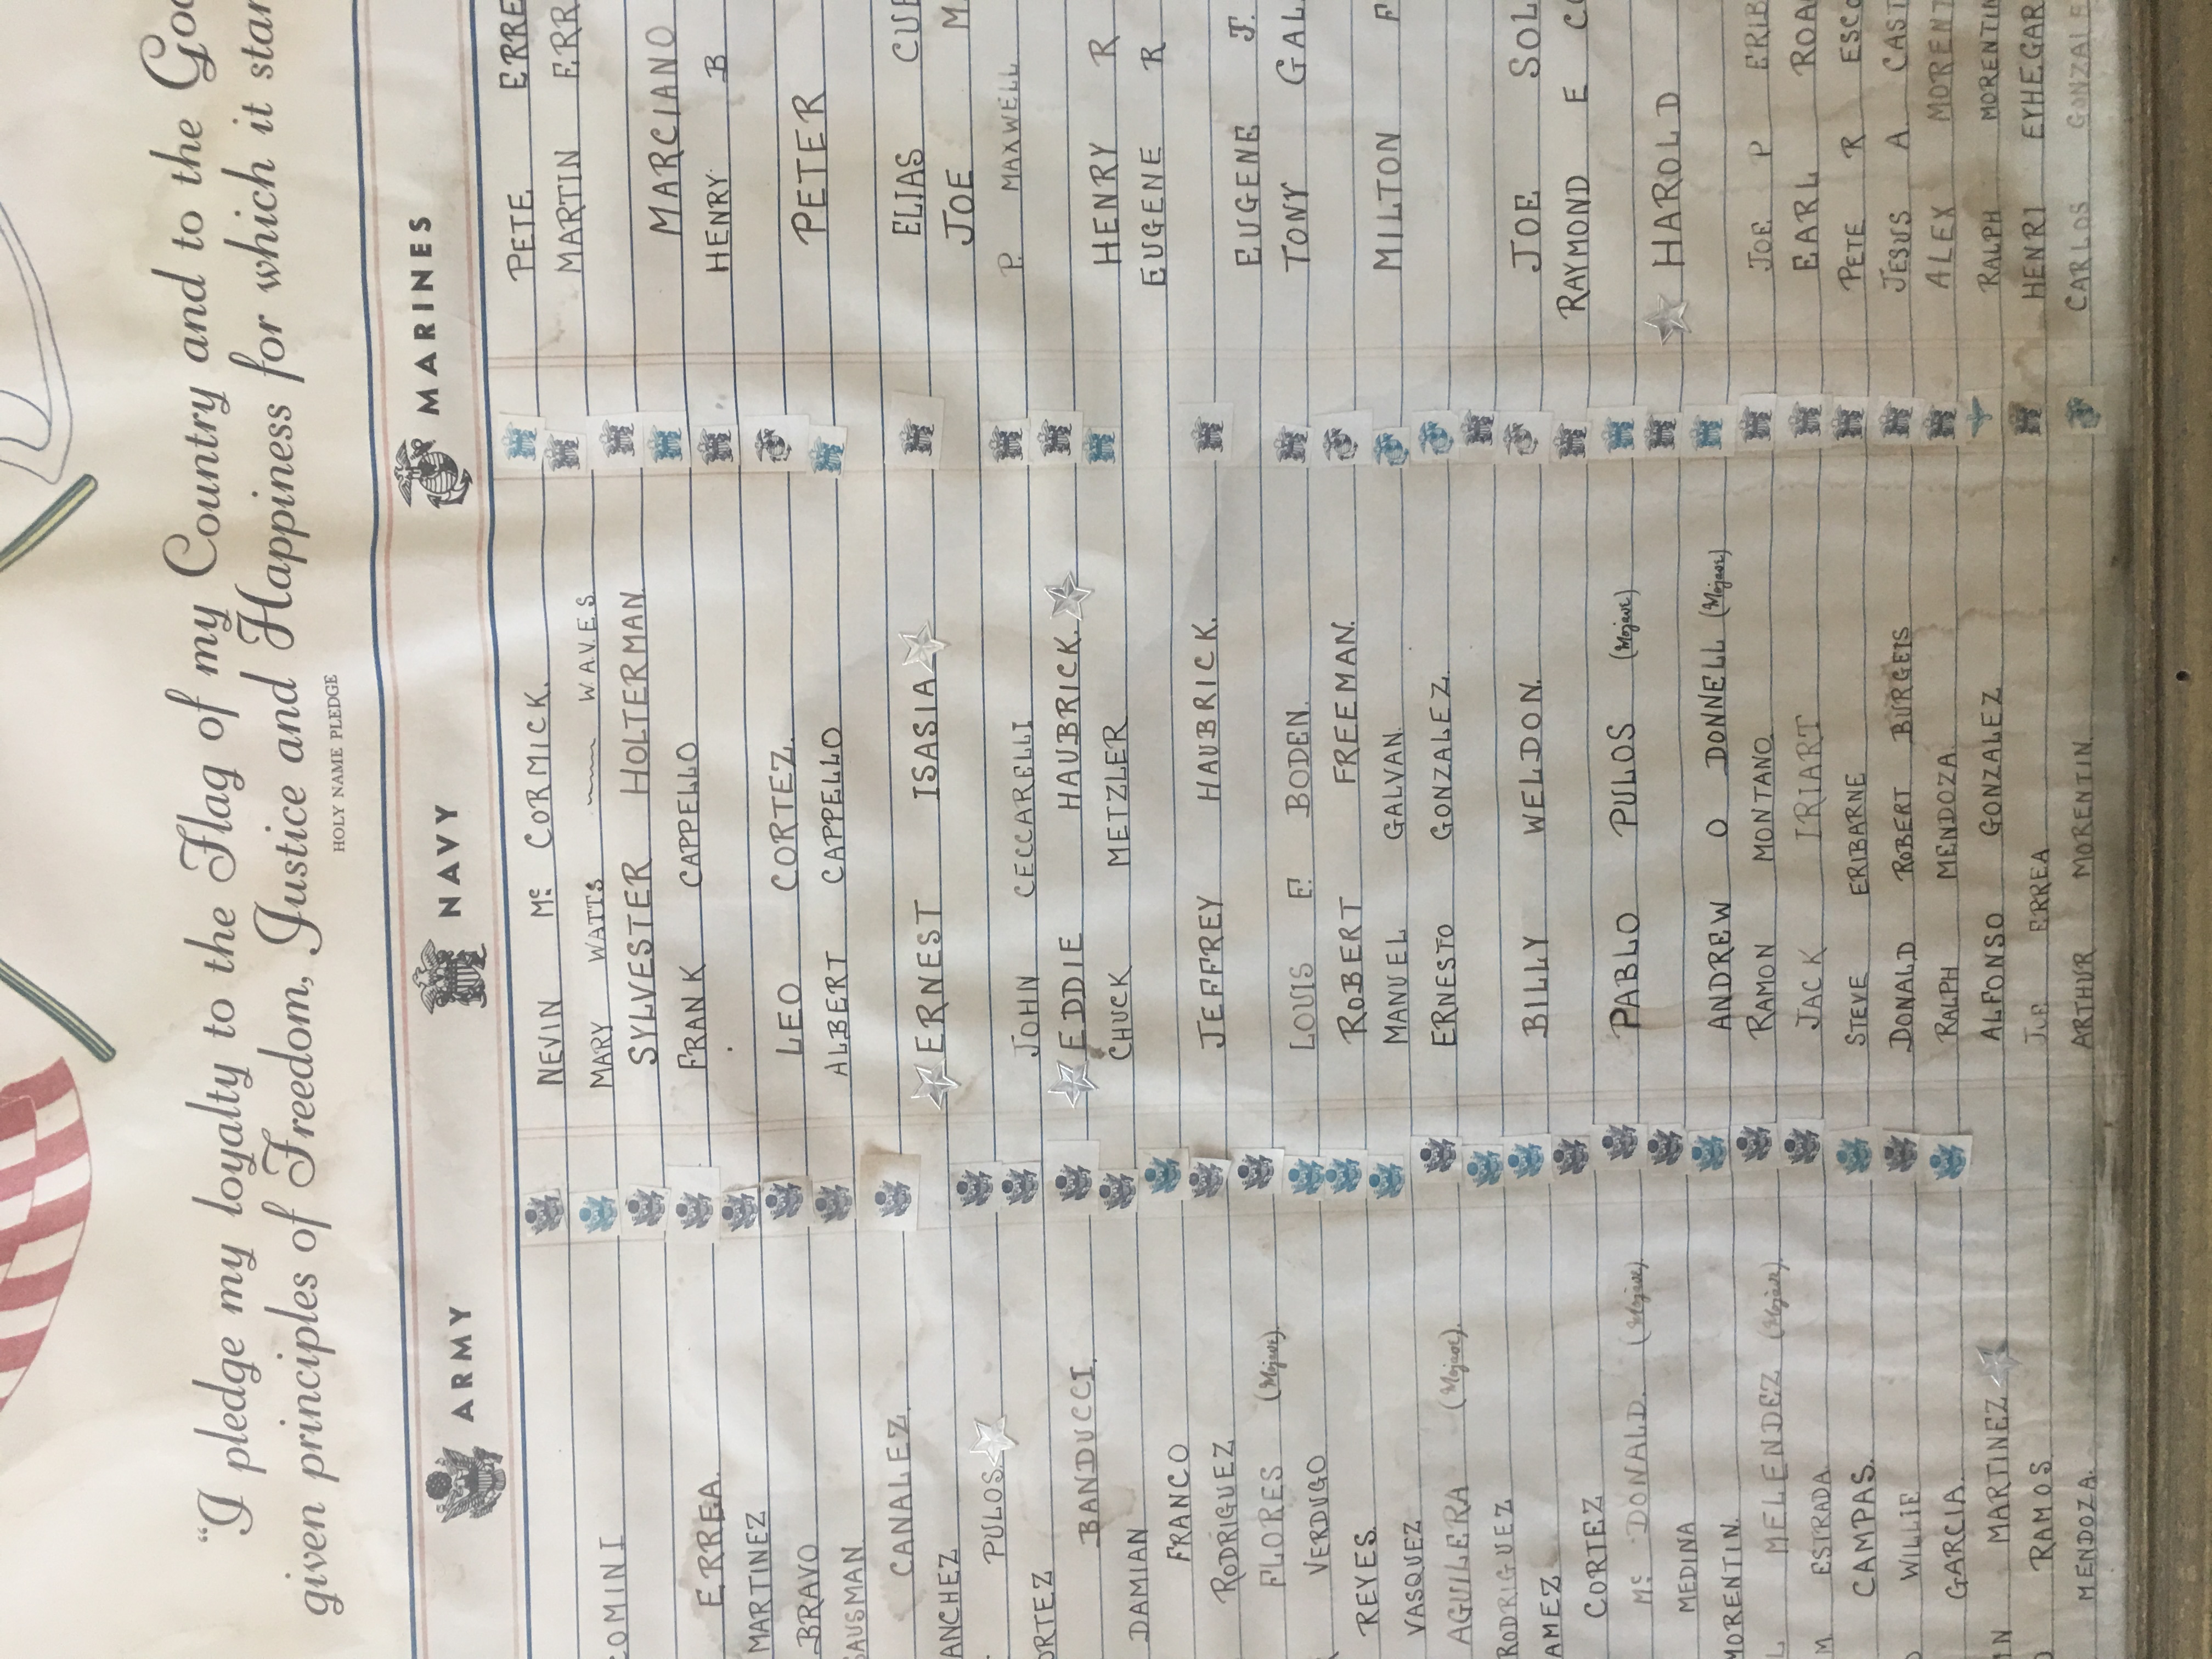 "I pledge my loyalty to the Flag of my Country and to the
given principles of Freedom, Justice and Happiness for which it
HOLY NAME PLEDGE
ARMY
COMINI
ERREA.
MARTINEZ
BRAVO
SAUSMAN
CANALEZ.
ANCHEZ
PULOS
ORTEZ
BANDUCCI.
DAMIAN
FRANCO
RODRIGUEZ
FLORES (Mojave).
VERDUGO
REYES.
VASQUEZ
AGUILERA (Mojave).
RODRIGUEZ
AMEZ
CORTEZ
Mc DONALD. (Mojave)
MEDINA
MORENTIN.
L. MELENDEZ (Mojave)
M ESTRADA
CAMPAS.
WILLIE
GARCIA.
MARTINEZ
RAMOS.
MENDOZA.
NAVY
NEVIN Mc CORMICK.
MARY WATTS W.A.V.E.S.
SYLVESTER HOLTERMAN
FRANK CAPPELLO
LEO CORTEZ.
ALBERT CAPPELLO
ERNEST ISASIA
JOHN CECCARELLI
EDDIE HAUBRICK.
CHUCK METZLER
JEFFREY HAUBRICK.
LOUIS E. BODEN.
ROBERT FREEMAN.
MANUEL GALVAN.
ERNESTO GONZALEZ.
BILLY WELDON.
PABLO PULOS (Mojave)
ANDREW O DONNELL (Mojave)
RAMON MONTANO
JACK IRIART
STEVE ERIBARNE
DONALD ROBERT BURGEIS
RALPH MENDOZA
ALFONSO GONZALEZ
JOE ERREA
ARTHUR MORENTIN
MARINES
PETE ERRE
MARTIN ERR
MARCIANO
HENRY B
PETER
ELIAS CUE
JOE M
P. MAXWELL
HENRY R
EUGENE R
EUGENE J.
TONY GAL
MILTON F
JOE SOL
RAYMOND E CO
HAROLD
JOE P ERIB
EARL ROA
PETE R ESCO
JESUS A CAST
ALEX MORENT
RALPH MORENTIN
HENRI EYHEGAR
CARLOS GONZALE